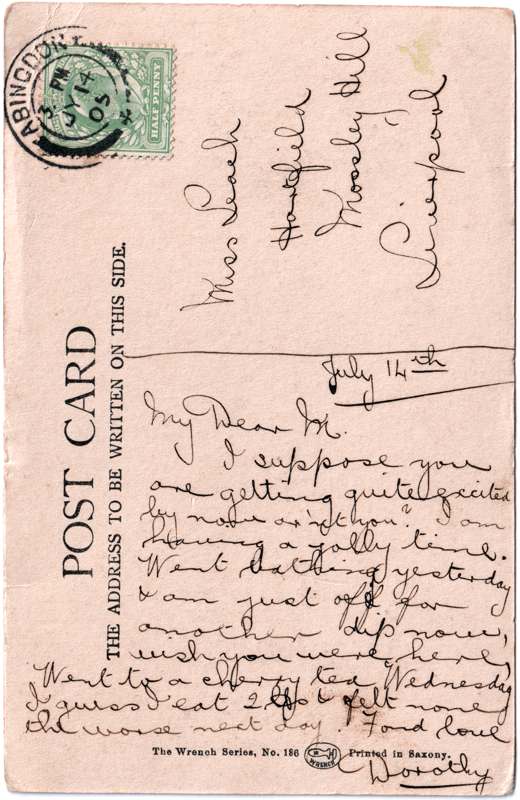 ABINGDON
3. PM
JY 14
05
HALF PENNY
POST CARD
THE ADDRESS TO BE WRITTEN ON THIS SIDE.
Miss Leach
Hartfield
Mossley Hill
Liverpool
July 14th
My Dear M.
I suppose you
are getting quite excited
by now ar'nt you? I am
having a jolly time.
Went bathing yesterday
& am just off for
another dip now,
wish you were here,
Went to a cherry tea Wednesday
I guess I eat 2 lbs & felt none
the worse next day. Fond love
Dorothy
The Wrench Series, No. 186
WRENCH
Printed in Saxony.